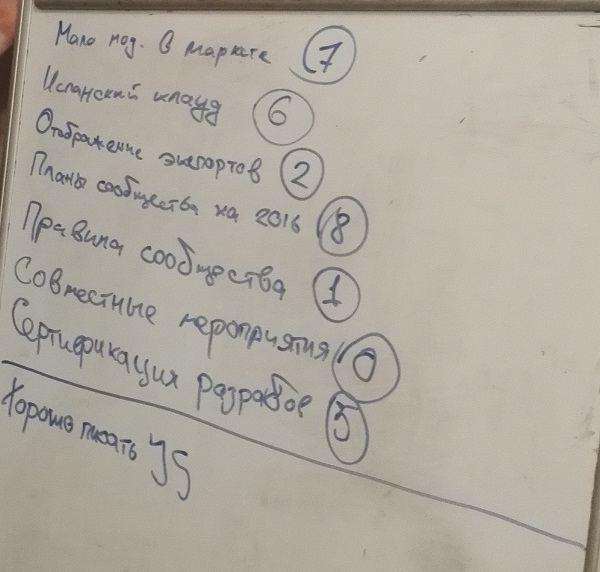 Мало мод. в маркете 7
Испанский клауд 6
Отображение экспортов 2
Планы сообщества на 2016 8
Правила сообщества 1
Совместные мероприятия 10
Сертификация разрабов 5
Хорошо писать JS